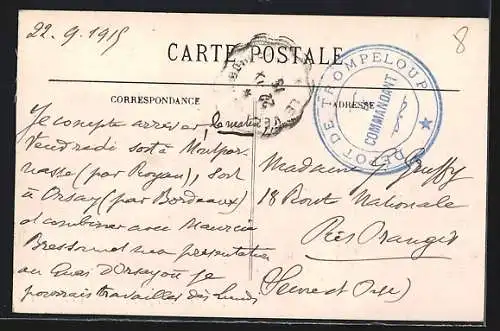 22.9.1915
8
CARTE POSTALE
CORRESPONDANCE
ADRESSE
DÉPÔT DE TROMPELOUP
COMMANDANT
Je compte arriver, le matin
Vendredi soit à Montpar-
nasse (par Royan), soit
à Orsay (par Bordeaux)
et combiner avec Maurice
Bressonnet ma présentation
au Quai d'Orsay où je
pourrais travailler dès lundi
Madame
18 Route Nationale
Ris Orangis
(Seine et Oise)